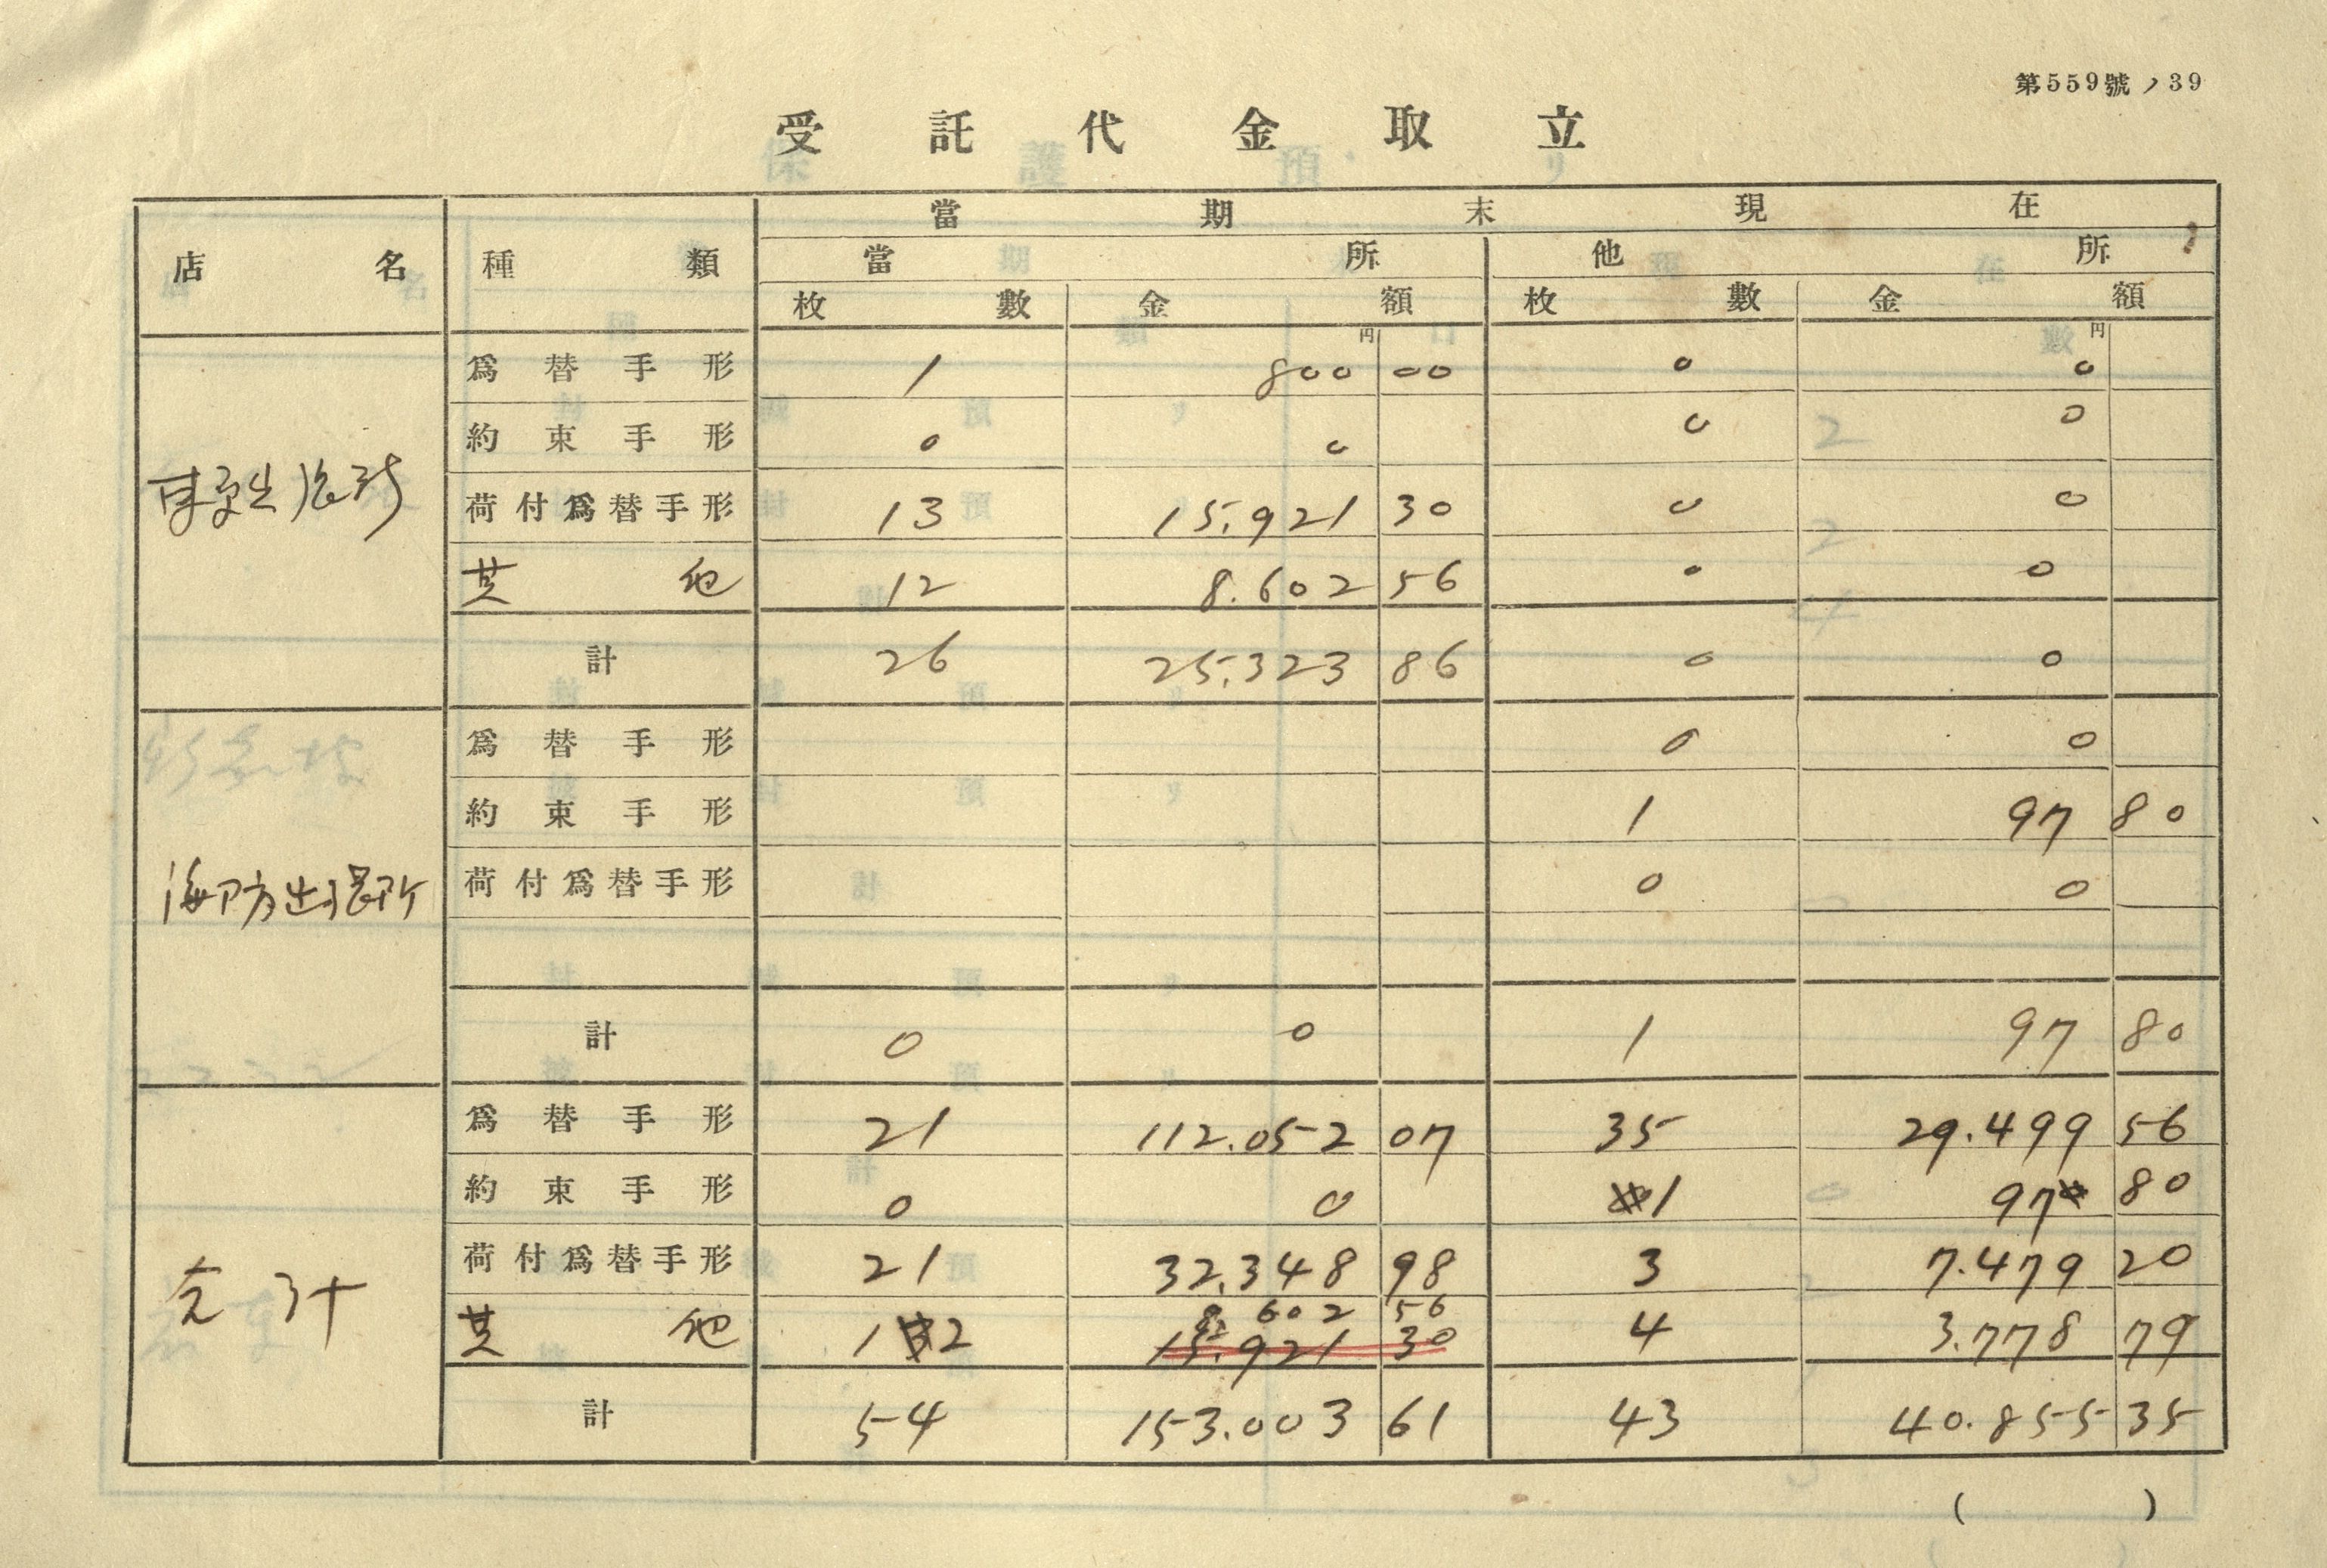 第559號ノ39
受託代金取立
店名 種類 當期末現在
當所 他所
枚數 金額 枚數 金額
円 円
爲替手形 1 800 00 0 0
約束手形 0 0 0 0
荷付爲替手形 13 15.921 30 0 0
其他 12 8.602 56 0 0
計 26 25.323 86 0 0
海防出張所
爲替手形 0 0
約束手形 1 97 80
荷付爲替手形 0 0
計 0 0 1 97 80
合計
爲替手形 21 112.052 07 35 29.499 56
約束手形 0 0 1 97 80
荷付爲替手形 21 32.348 98 3 7.479 20
8 602 56
其他 12 15.921 30 4 3.778 79
計 54 153.003 61 43 40.855 35
( )